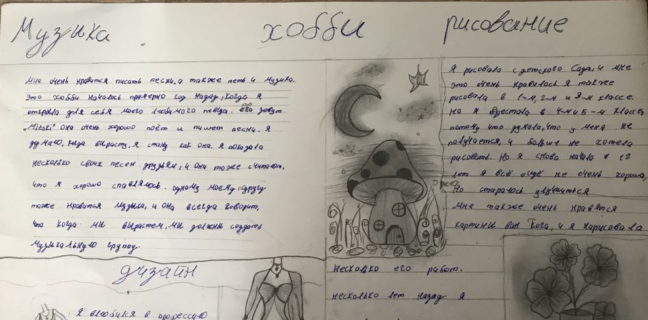 Музыка
хобби
рисование
Мне очень нравится писать песни, а также петь и музыка.
Это хобби началось примерно год назад, когда я
открыла для себя моего любимого певца. его зовут
"Mitski" она очень хорошо поёт и пишет песни. Я
думаю, когда вырасту, я стану как она. Я показала
несколько своих песен друзьям, и они тоже считают,
что я хорошо справляюсь. одному моему другу
тоже нравится музыка, и она всегда говорит,
что когда мы вырастем, мы должны создать
музыкальную группу
Я рисовала с детского Сада, и мне
это очень нравилось я также
рисовала в 1-м, 2-м и 3-м классе.
Но я в 4-м и 5-м классе,
потому что думала, что у меня не
получается, и больше не хотела
рисовать. Но я снова начала в 6
лет я всё ещё не очень хорошо,
Но стараюсь улучшаться
Мне также очень нравятся
картины Ван Гога, и я нарисовала
несколько его работ.
несколько лет назад я
дизайн
Я влюбился в профессию